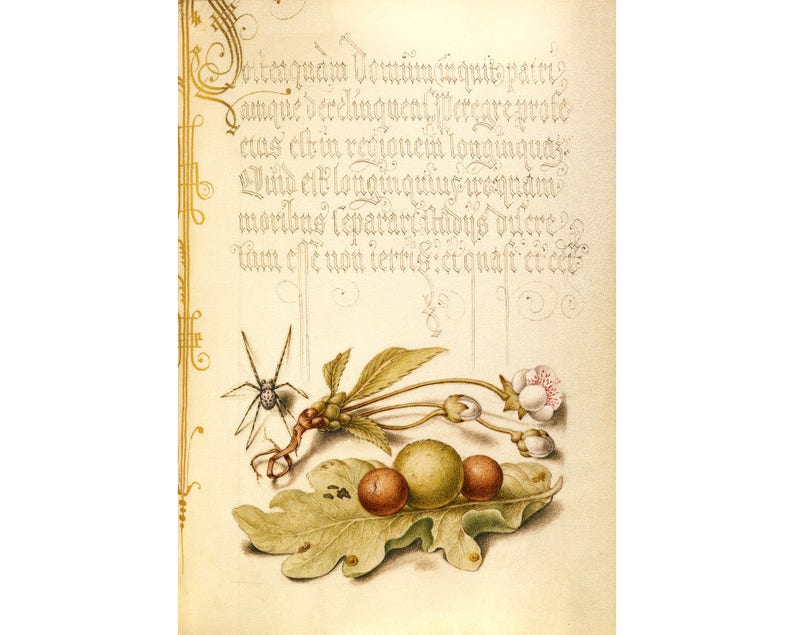 Posteaquàm Domum inquit patri,
amque derelinquens, peregre profe,
ctus est in regionem longinquam.
Quid est longinquius usquam
moribus separari, studijs discre,
tum esse non terris: et quasi et cet